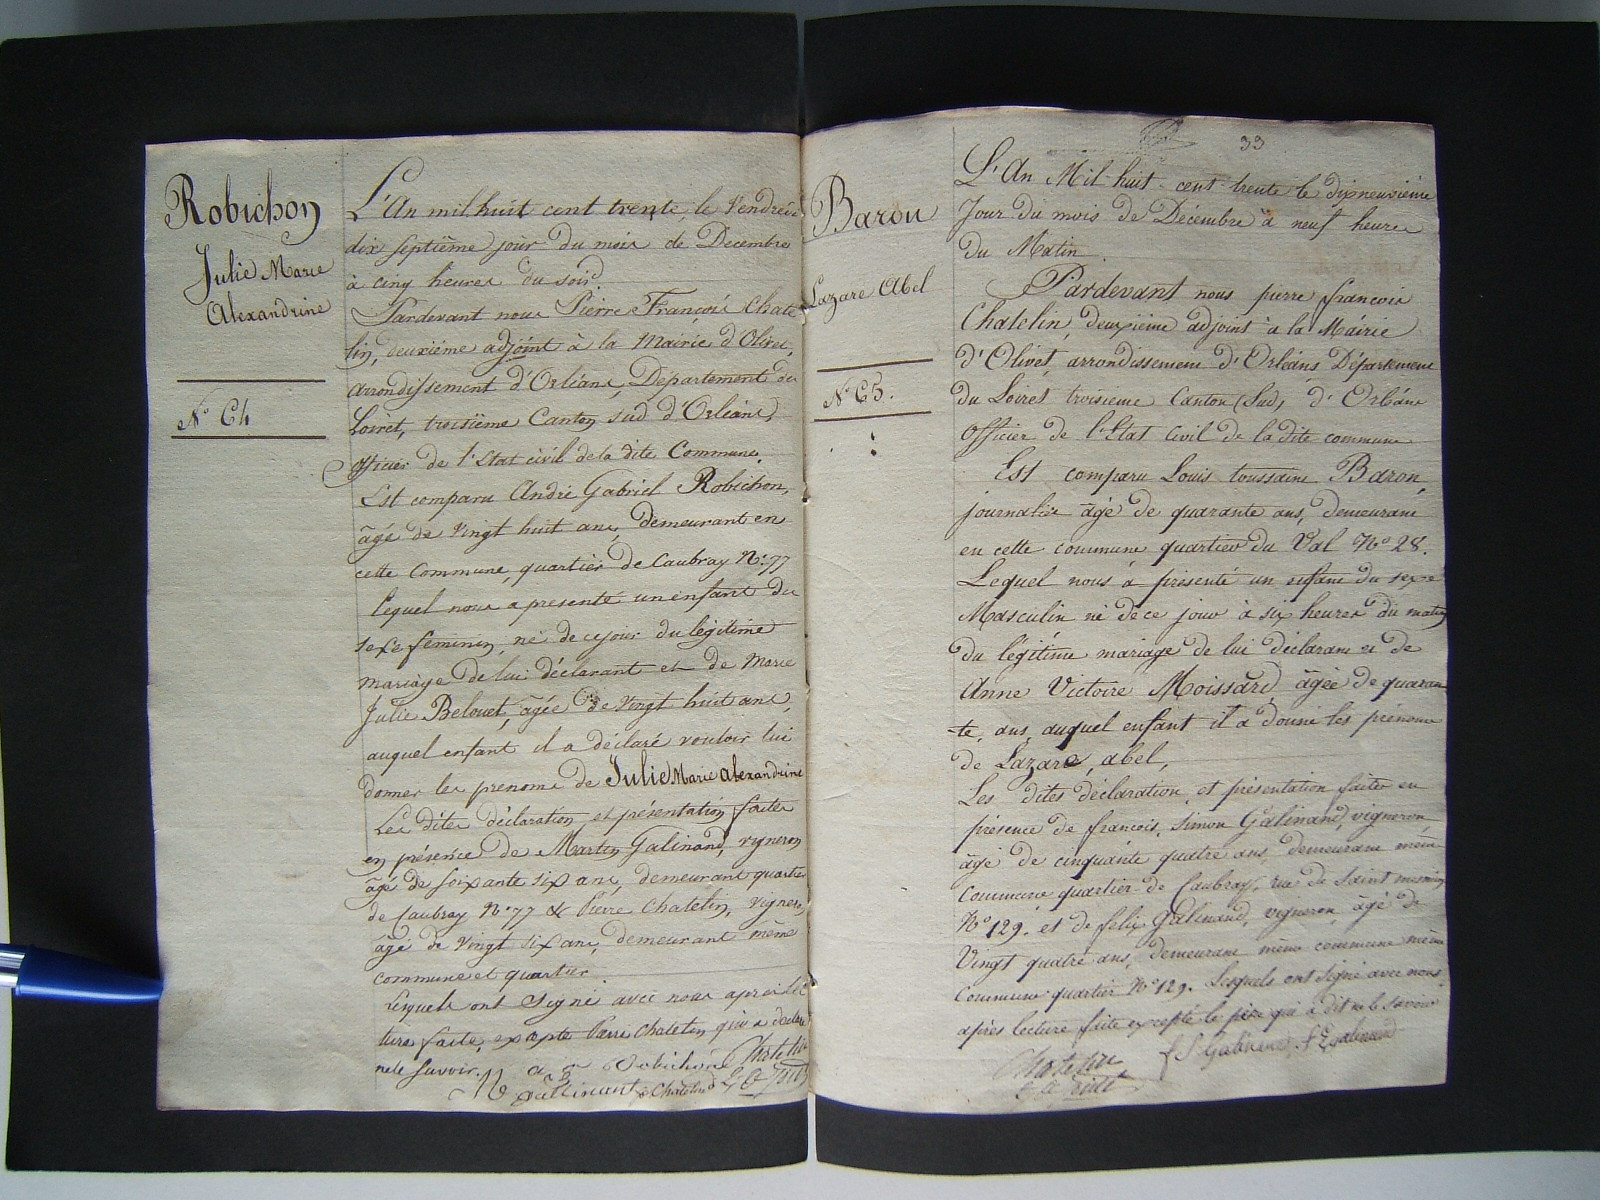 Robichon
Julie Marie
Alexandrine
N° 64
L'An mil huit cent trente, le Vendredi
dix septième jour du mois de Decembre
à cinq heures du soir.
Pardevant nous Pierre François Chate
lin, deuxième adjoint à la Mairie d'Olivet,
arrondissement d'Orléans, Département du
Loiret, troisième Canton sud d'Orléans,
officier de l'Etat civil de la dite Commune.
Est comparu André Gabriel Robichon,
âgé de vingt huit ans, demeurant en
cette Commune, quartier de Caubray N°.77
lequel nous a présenté un enfant du
sexe féminin, né de ce jour du légitime
mariage de lui déclarant et de Marie
Julie Belouet, âgée de vingt huit ans,
auquel enfant il a déclaré vouloir lui
donner les prenoms de Julie Marie Alexandrine
Les dites déclaration et présentation faites
en présence de Martin Galinand, vigneron
âgé de soixante six ans, demeurant quartier
de Caubray N°.77 & Pierre Chatelin, vigneron,
âgé de vingt six ans, demeurant même
commune et quartier.
Lesquels ont signé avec nous après lec
ture faite, excepté Pierre Chatelin qui a déclaré
ne le savoir.
Robichon Chatelin
gallinant Chatelin
33
Baron
Lazare Abel
N° 65.
L'An Mil huit cent trente le dixneuvième
Jour du mois de Décembre à neuf heures
du Matin.
Pardevant nous pierre françois
Chatelin, deuxième adjoint à la Mairie
d'Olivet, arrondissement d'Orléans, Département
du Loiret, troisieme Canton (Sud) d'Orléans
Officier de l'Etat Civil de la dite commune
Est comparu Louis toussaint Baron,
journalier âgé de quarante ans, demeurant
en cette commune quartier du Val N° 28.
Lequel nous à présenté un enfant du sexe
Masculin né de ce jour à six heures du matin
du légitime mariage de lui déclarant et de
Anne Victoire Moissard, âgée de quaran
te, ans, auquel enfant il a donné les prénoms
de Lazare, abel,
Les dites déclaration et présentation faites en
présence de francois, Simon Galinand, vigneron
âgé de cinquante quatre ans, demeurant même
Commune quartier de Caubray, rue de Saint mesmin
N° 129. et de felix Galinand, vigneron, âgé de
Vingt quatre ans, demeurant même commune même
Commune quartier N° 129. Lesquels ont signé avec nous
après lecture faite excepté le père qui à dit ne le savoir
Chatelin f S Galinand f galinand